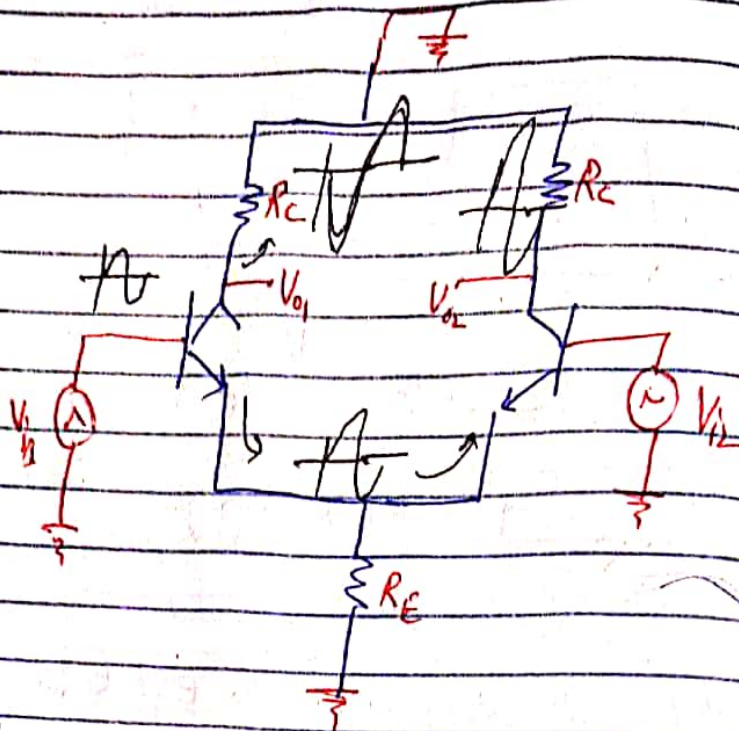 R_C
R_C
V_o1
V_o2
V_i1
V_i2
R_E